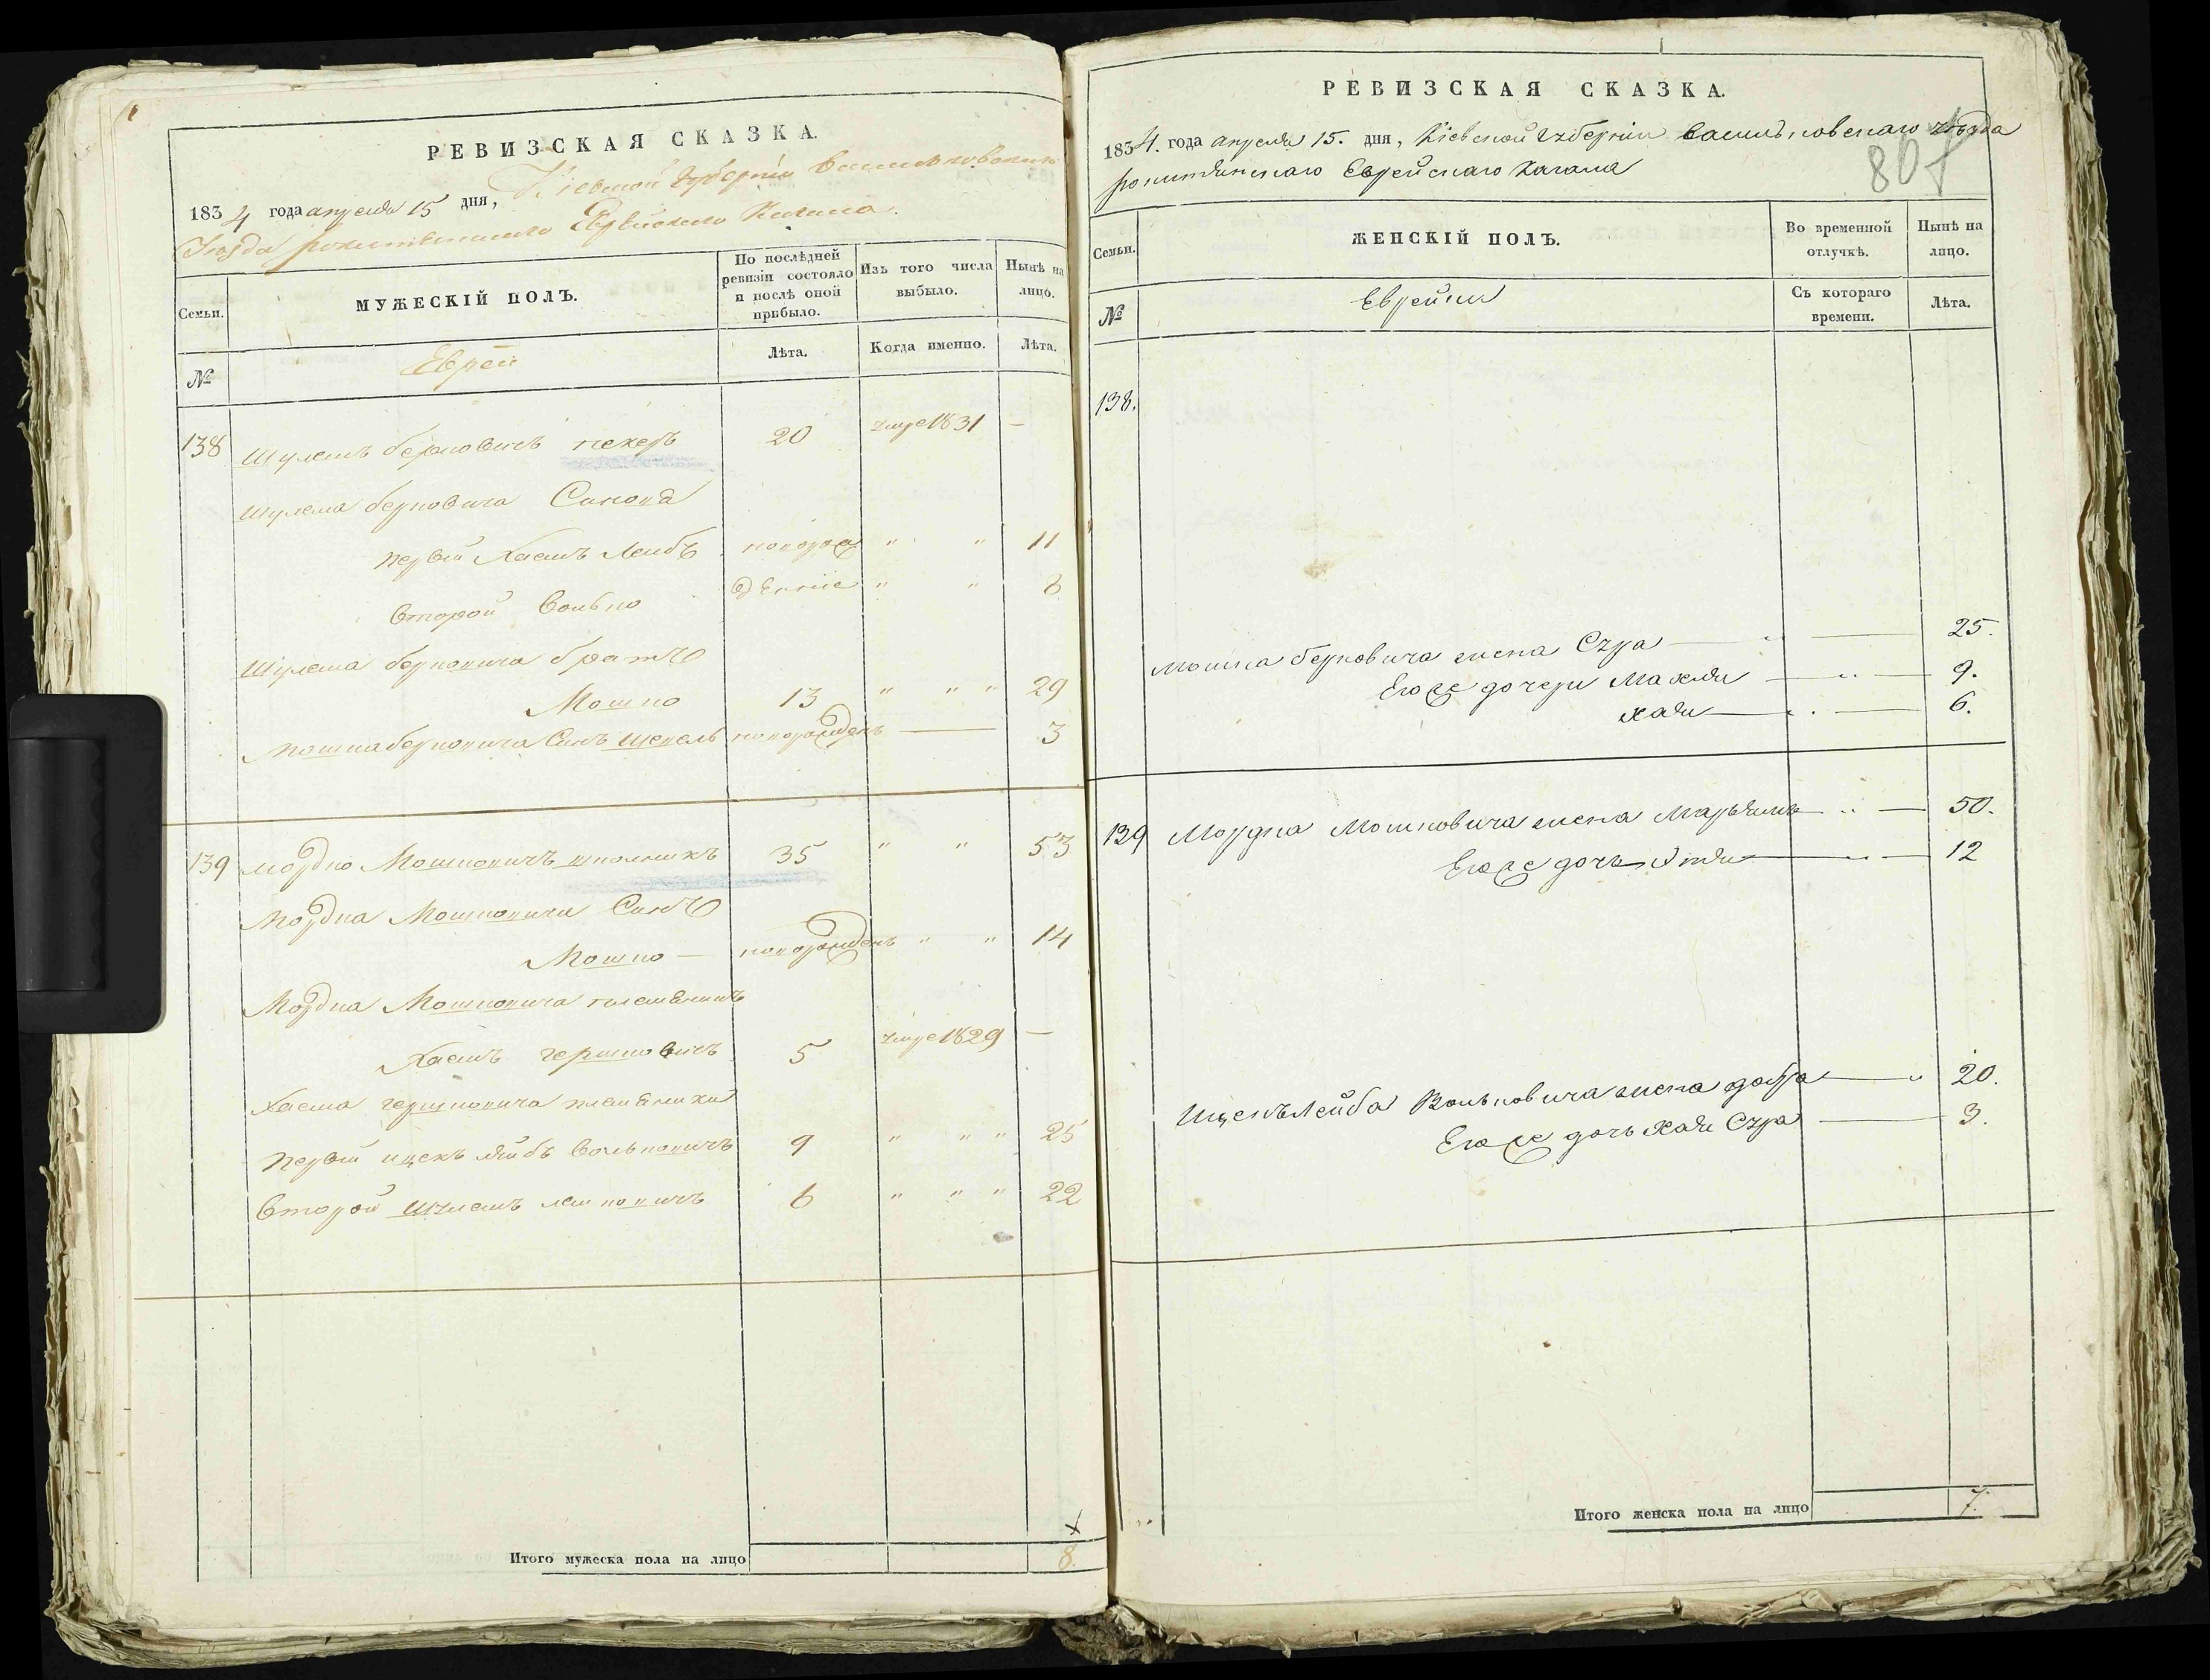 РЕВИЗСКАЯ СКАЗКА.
1834 года апреля 15 дня, Кіевской Губерніи Васильковскаго
Уезда рокитянскаго Еврейскаго Кагала.
Семьи.
МУЖЕСКІЙ ПОЛЪ.
По послѣдней ревизіи состояло и послѣ оной прибыло.
Изъ того числа выбыло.
Нынѣ на лицо.
№
Евреи
Лѣта.
Когда именно.
Лѣта.
138 Шулемъ берковичъ пекеръ 20 умре 1831 —
Шулема берковича Синова
первій Хаемъ Лейбъ новорож " " 11
Второй Волько денніе " " 8
Шулема берковича братъ
Мошко 13 " " " 29
мошка берковича Синъ Шепель новорожденъ — 3
139 мордко Мошковичъ школникъ 35 " " 53
Мордка Мошковича Синъ
Мошко — новорожденъ " " 14
Мордка Мошковича племеникъ
Хаемъ гершковичъ 5 умре 1829 —
Хаема гершковича племеники
первій ицекъ лейбъ Вольковичъ 9 " " " 25
Второй Шулемъ 6 " " " 22
Итого мужеска пола на лицо 8.
РЕВИЗСКАЯ СКАЗКА.
1834. года апреля 15. дня, Кіевской Губерніи Васильковскаго уезда
рокитянскаго Еврейскаго Кагала
807
Семьи.
ЖЕНСКІЙ ПОЛЪ.
Во временной отлучкѣ.
Нынѣ на лицо.
№
Еврейки
Съ котораго времени.
Лѣта.
138.
Мошка берковича жена Сура — " — 25.
Его же дочери Махля — " — 9.
хая — " — 6.
139 Мордка Мошковича жена Марьямъ — " — 50.
Его же дочь — " — 12
Ицекъ Лейба Вольковича жена добра — " 20.
Его же дочь хая Сура — 3.
Итого женска пола на лицо 7.